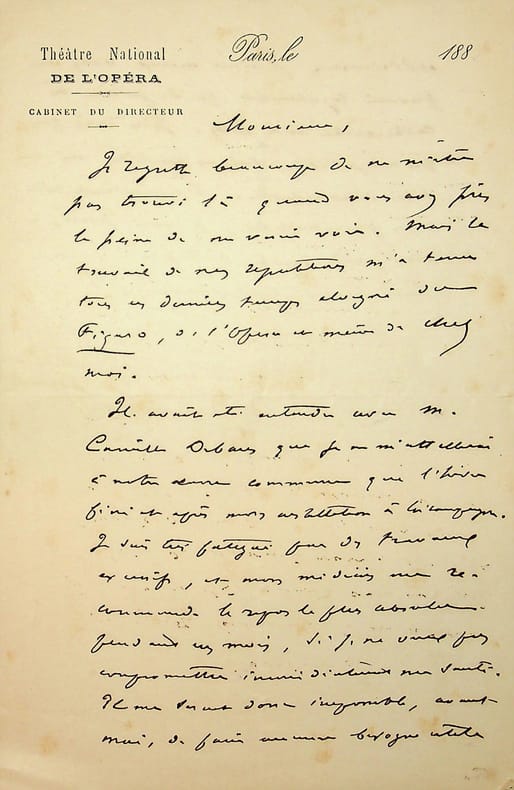 Théâtre National
DE L'OPÉRA
CABINET DU DIRECTEUR
Paris, le 188
Monsieur,
Je regrette beaucoup de ne m'être
pas trouvé là quand vous avez pris
la peine de me venir voir. Mais le
travail de mes répétitions m'a tenu
tous ces derniers temps éloigné du
Figaro, de l'Opéra et même de chez
moi.
Il avait été entendu avec M.
Camille que je ne m'attellerai
à notre œuvre commune que l'hiver
fini et après mon installation à la campagne.
Je suis très fatigué par des travaux
excessifs, et mon médecin me re-
commande le repos le plus absolu
pendant un mois, si je ne veux pas
compromettre immédiatement ma santé.
Il me serait donc impossible, avant
mai, de faire aucune besogne utile